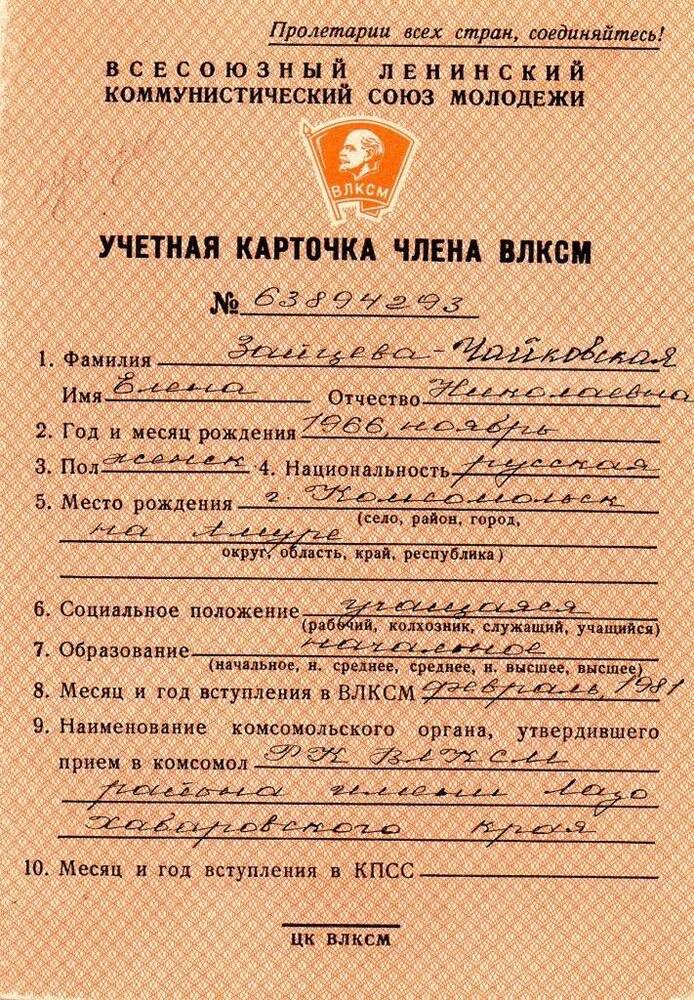 Пролетарии всех стран, соединяйтесь!
ВСЕСОЮЗНЫЙ ЛЕНИНСКИЙ
КОММУНИСТИЧЕСКИЙ СОЮЗ МОЛОДЕЖИ
ВЛКСМ
УЧЕТНАЯ КАРТОЧКА ЧЛЕНА ВЛКСМ
№ 63894293
1. Фамилия Зайцева-Чайковская
Имя Елена Отчество Николаевна
2. Год и месяц рождения 1966, ноябрь
3. Пол женск 4. Национальность русская
5. Место рождения г. Комсомольск
(село, район, город,
на Амуре
округ, область, край, республика)
6. Социальное положение учащаяся
(рабочий, колхозник, служащий, учащийся)
7. Образование начальное
(начальное, н. среднее, среднее, н. высшее, высшее)
8. Месяц и год вступления в ВЛКСМ февраль, 1981
9. Наименование комсомольского органа, утвердившего
прием в комсомол РК ВЛКСМ
района имени Лазо
Хабаровского края
10. Месяц и год вступления в КПСС
ЦК ВЛКСМ